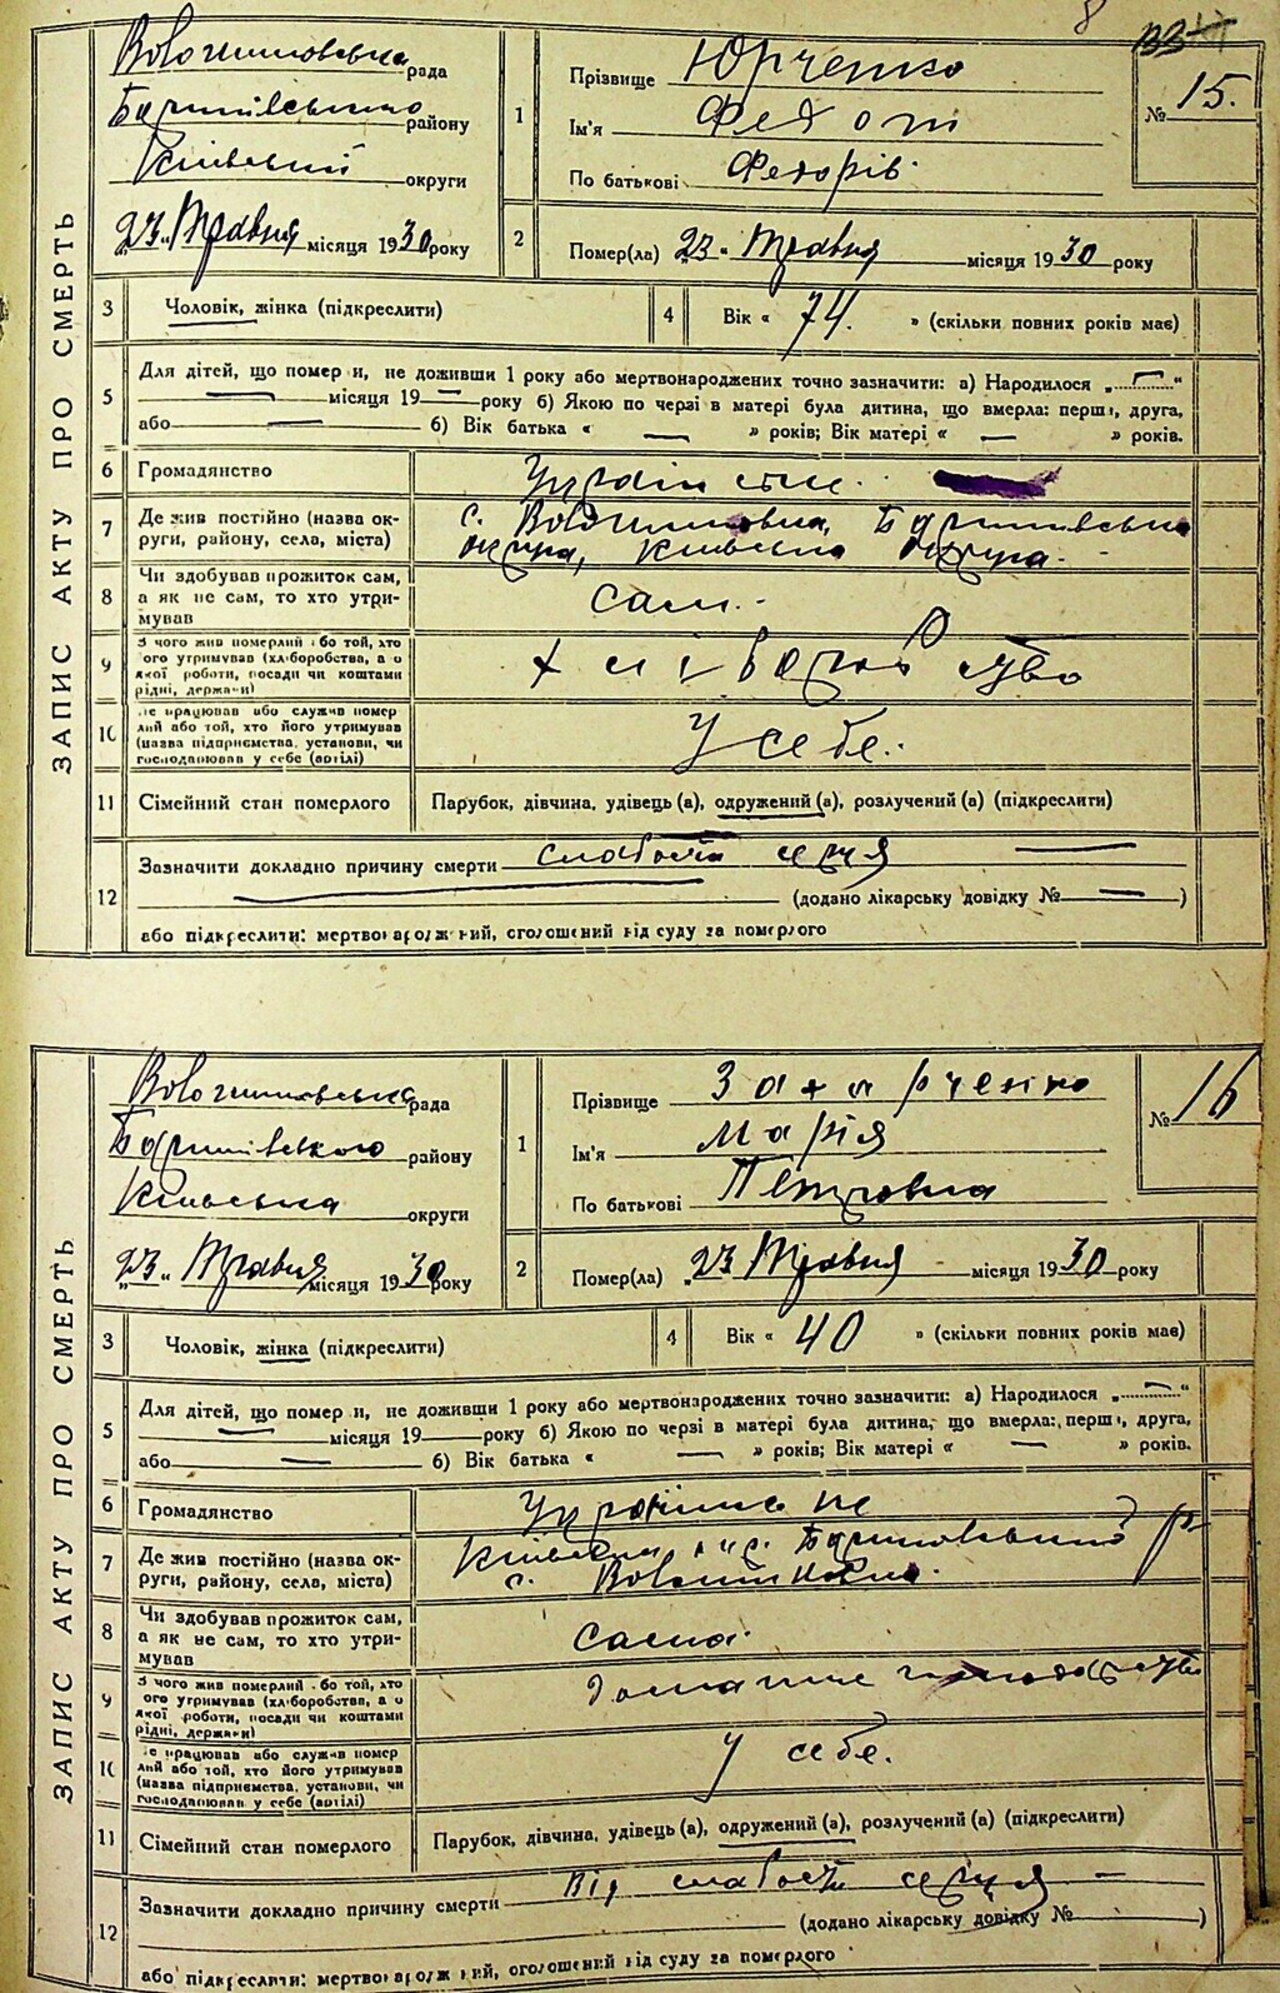 8
ЗАПИС АКТУ ПРО СМЕРТЬ
рада
району
Київський округи
„23„ Травня місяця 1930 року
1
Прізвище Юрченко
Ім'я Федот
По батькові Федорів
№ 15.
2
Помер(ла) „23„ Травня місяця 1930 року
3
Чоловік, жінка (підкреслити)
4
Вік « 74. » (скільки повних років має)
5
Для дітей, що помер и, не доживши 1 року або мертвонароджених точно зазначити: а) Народилося „ — “
— місяця 19 — року б) Якою по черзі в матері була дитина, що вмерла: перш, друга,
або — б) Вік батька « — » років; Вік матері « — » років.
6
Громадянство
7
Де жив постійно (назва ок-
руги, району, села, міста)
с.
Київська округа.
8
Чи здобував прожиток сам,
а як не сам, то хто утри-
мував
сам.
9
З чого жив померлий або той, хто
ого утримував (хліборобства, а о
якої роботи, посади чи коштами
рідні, держави)
хліборобство
10
де працював або служив помер
лий або той, хто його утримував
(назва підприємства, установи, чи
господарював у себе (артілі)
У себе.
11
Сімейний стан померлого
Парубок, дівчина, удівець (а), одружений (а), розлучений (а) (підкреслити)
12
Зазначити докладно причину смерти слабость серця —
— (додано лікарську довідку № — )
або підкреслити: мертвонароджений, оголошений від суду за померлого
ЗАПИС АКТУ ПРО СМЕРТЬ
рада
Баришівського району
Київська округи
„23„ Травня місяця 1930 року
1
Прізвище Захарченко
Ім'я Марія
По батькові Петровна
№ 16
2
Помер(ла) „23 Травня місяця 1930 року
3
Чоловік, жінка (підкреслити)
4
Вік « 40 » (скільки повних років має)
5
Для дітей, що помер и, не доживши 1 року або мертвонароджених точно зазначити: а) Народилося „ — “
— місяця 19 року б) Якою по черзі в матері була дитина, що вмерла: перш, друга,
або — б) Вік батька « — » років; Вік матері « — » років.
6
Громадянство
7
Де жив постійно (назва ок-
руги, району, села, міста)
с.
8
Чи здобував прожиток сам,
а як не сам, то хто утри-
мував
сама.
9
З чого жив померлий або той, хто
ого утримував (хліборобства, а о
якої роботи, посади чи коштами
рідні, держави)
домашнє
10
де працював або служив помер
лий або той, хто його утримував
(назва підприємства, установи, чи
господарював у себе (артілі)
У себе.
11
Сімейний стан померлого
Парубок, дівчина, удівець (а), одружений (а), розлучений (а) (підкреслити)
12
Зазначити докладно причину смерти Від слабости серця —
(додано лікарську довідку № )
або підкреслити: мертвонароджений, оголошений від суду за померлого